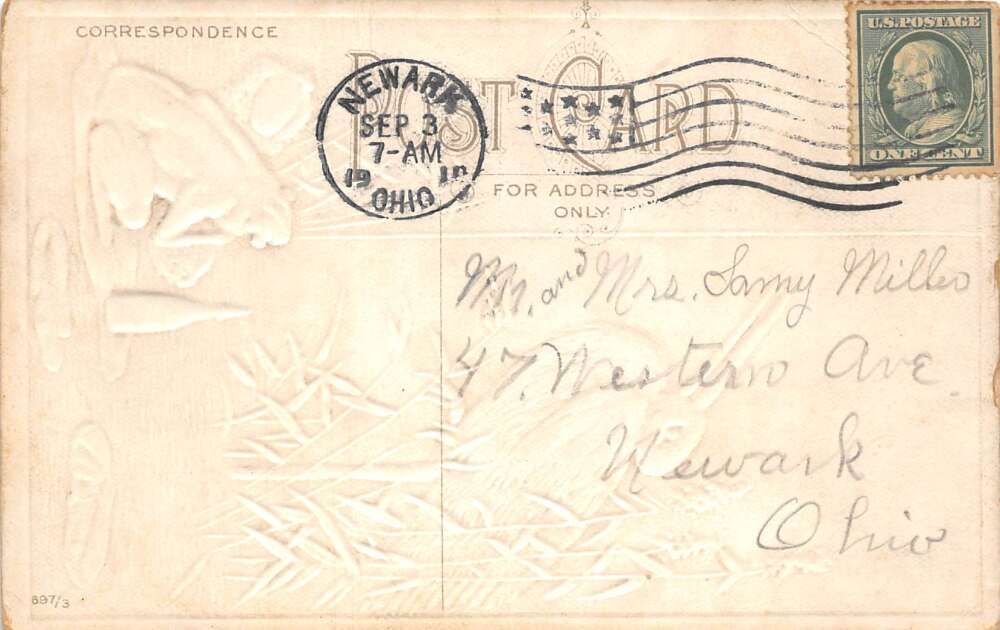 CORRESPONDENCE
POST CARD
NEWARK
SEP 3
7-AM
1910
OHIO
U.S. POSTAGE
ONE CENT
FOR ADDRESS
ONLY
Mr. and Mrs. Miller
47 Western Ave.
Newark
Ohio
697/3